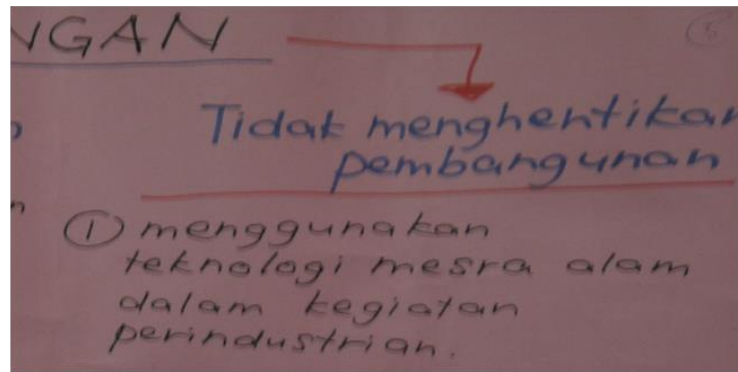 NGAN
5
Tidak menghentikan
pembangunan
① menggunakan
teknologi mesra alam
dalam kegiatan
perindustrian.